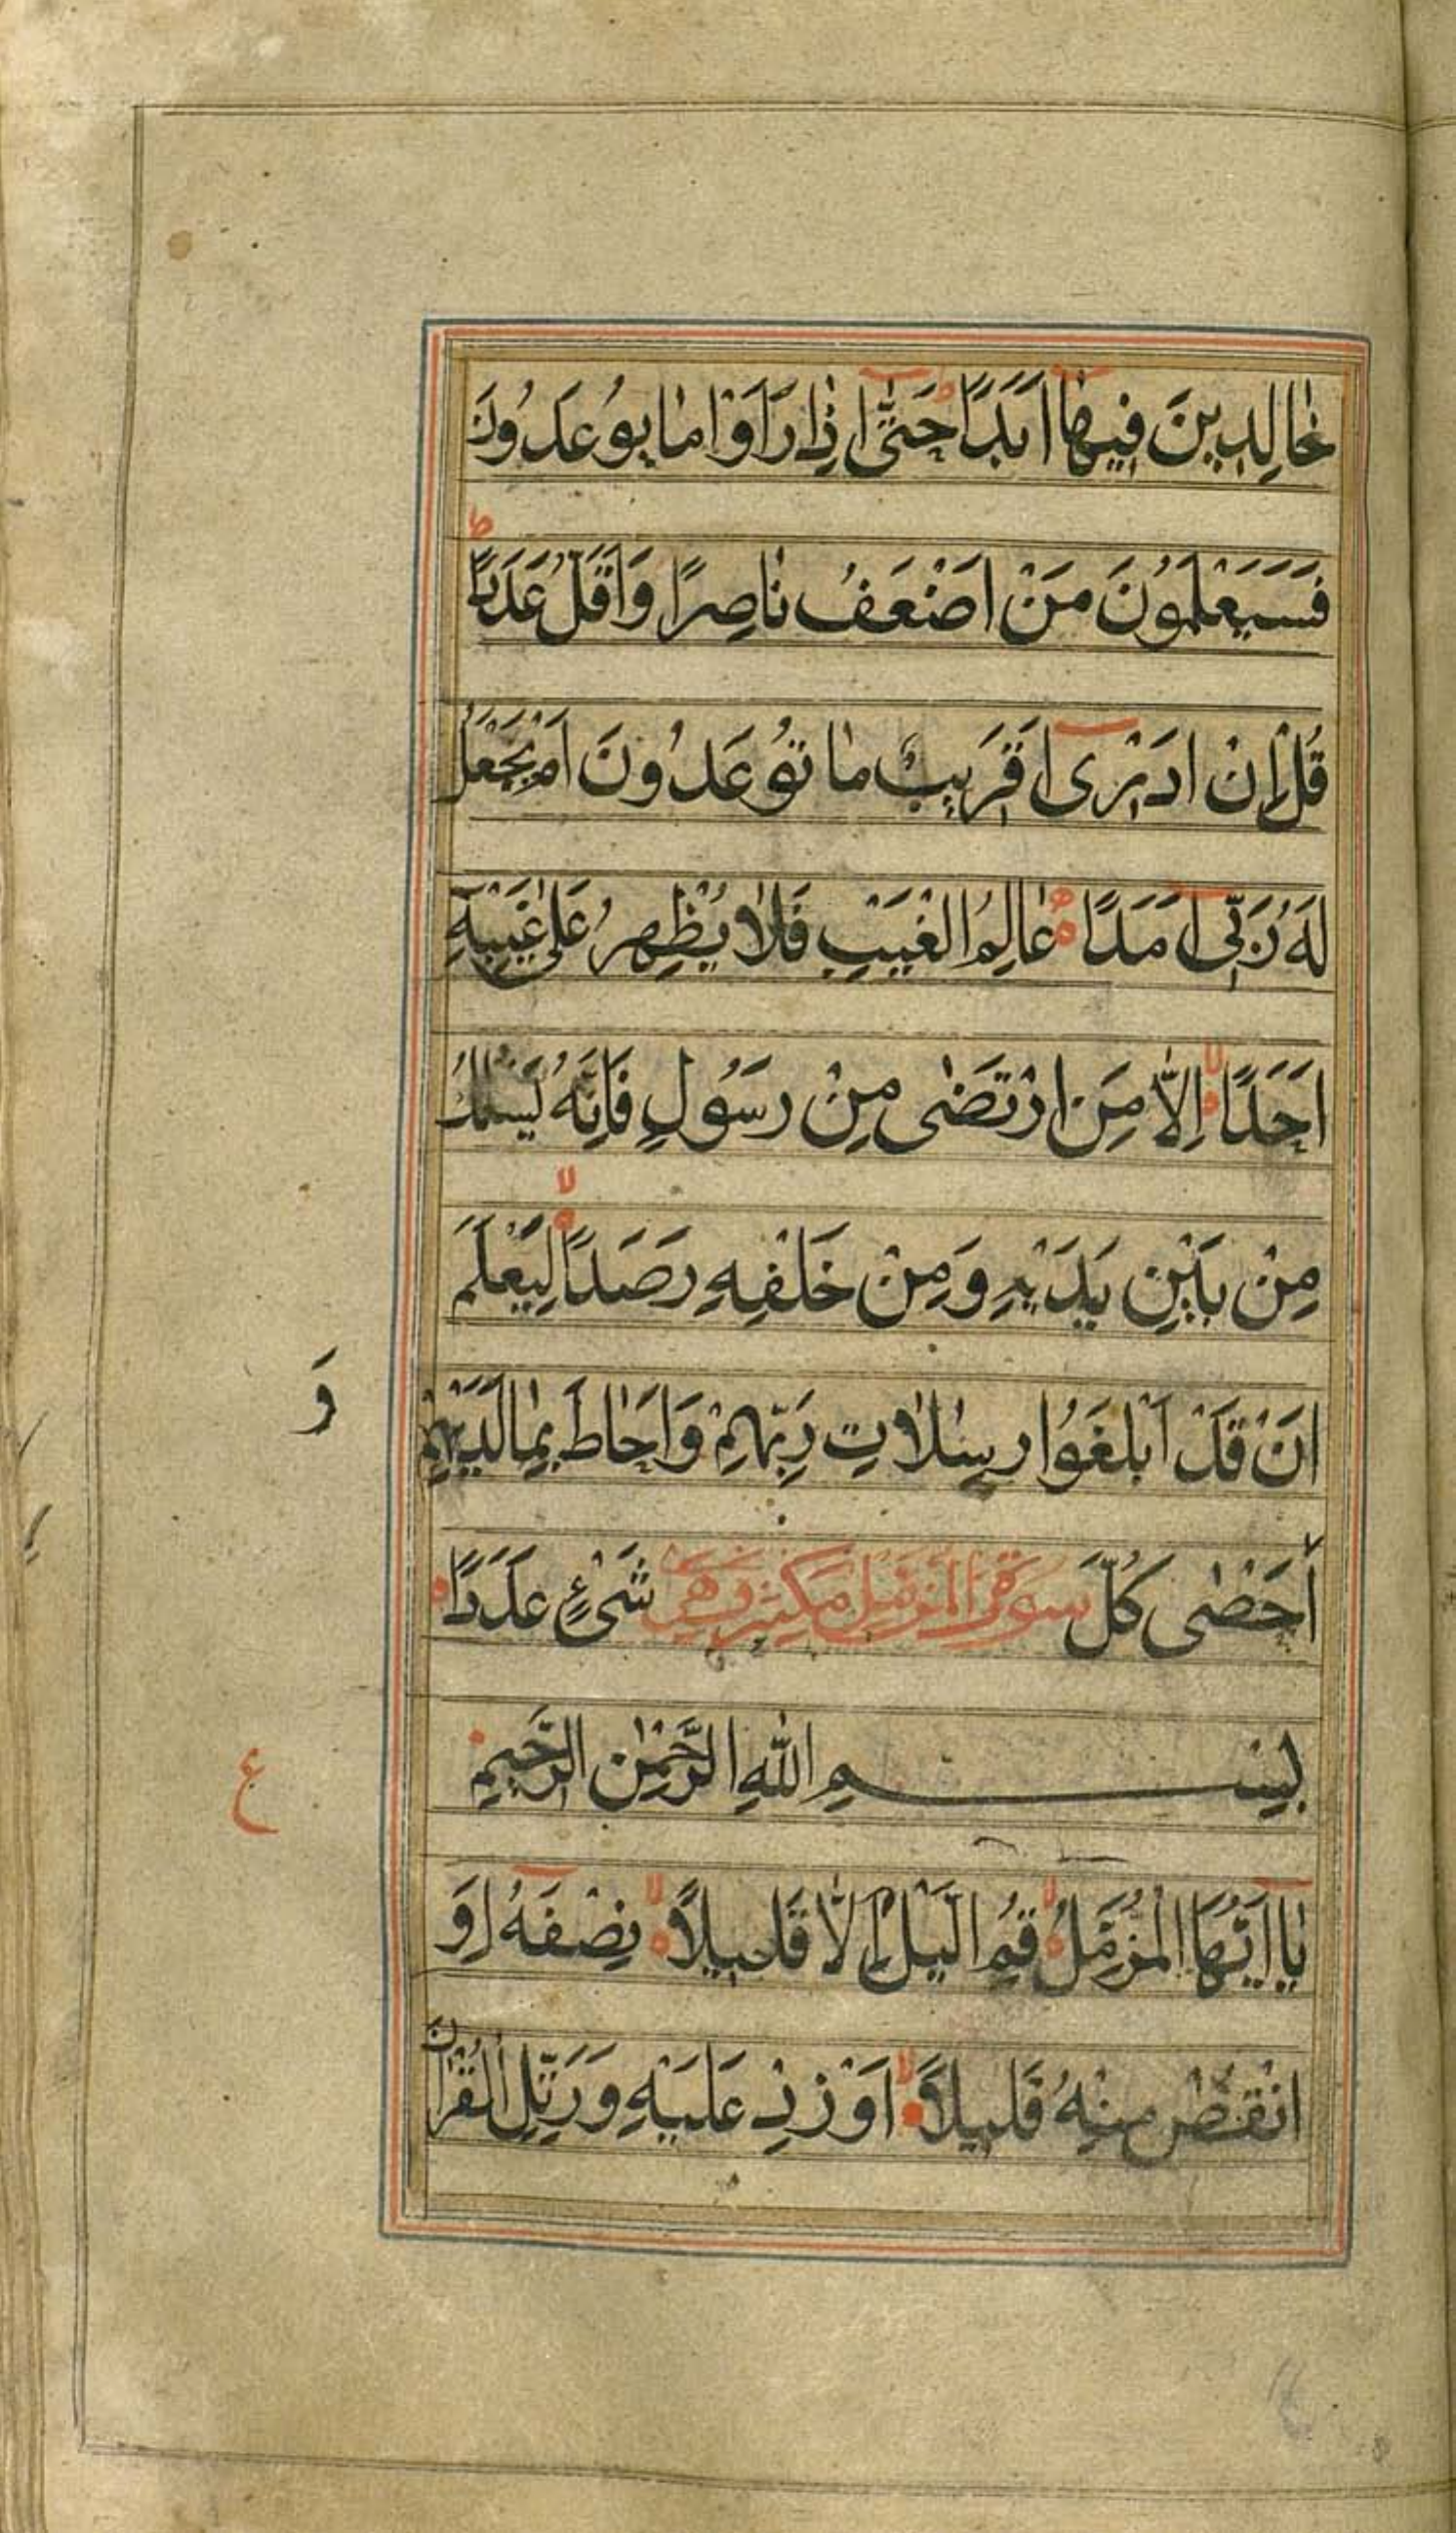 خٰالِدِينَ فِيهٰا اَبَدًا حَتّٰى اِذٰا رَاَوْا مٰا يُوعَدُونَ
فَسَيَعْلَمُونَ مَنْ اَضْعَفُ نٰاصِرًا وَاَقَلُّ عَدَدًا ط
قُلْ اِنْ اَدْرِى اَقَرِيبٌ مٰا تُوعَدُونَ اَمْ يَجْعَلُ
لَهُ رَبِّى اَمَدًا عٰالِمُ الْغَيْبِ فَلٰا يُظْهِرُ عَلٰى غَيْبِهِ
اَحَدًا لا اِلّٰا مَنِ ارْتَضٰى مِنْ رَسُولٍ فَاِنَّهُ يَسْلُكُ
مِنْ بَيْنِ يَدَيْهِ وَمِنْ خَلْفِهِ رَصَدًا لا لِيَعْلَمَ
اَنْ قَدْ اَبْلَغُوا رِسٰلاٰتِ رَبِّهِمْ وَاَحٰاطَ بِمٰا لَدَيْهِمْ
وَ
اَحْصٰى كُلَّ شَىْءٍ عَدَدًا
سورة المزمل مكية وهي
بِسْمِ اللّٰهِ الرَّحْمٰنِ الرَّحِيمِ
ع
يٰا اَيُّهَا الْمُزَّمِّلُ لا قُمِ الَّيْلَ اِلّٰا قَلِيلاً لا نِصْفَهُ اَوِ
انْقُصْ مِنْهُ قَلِيلاً لا اَوْ زِدْ عَلَيْهِ وَرَتِّلِ الْقُرْاٰنَ